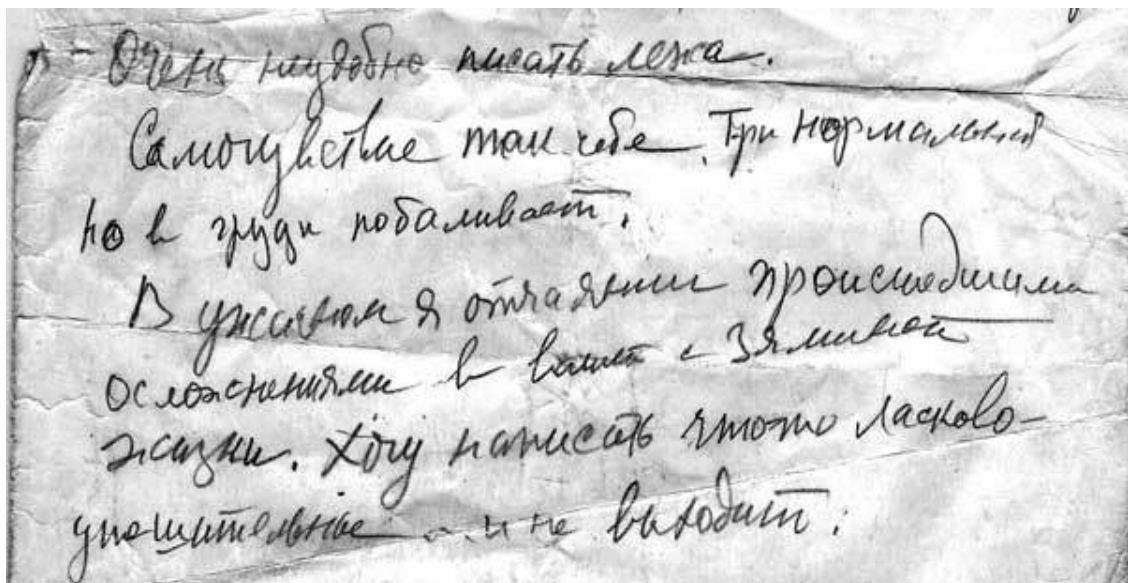 - Очень неудобно писать лежа.
Самочувствие так себе. Три нормальный
но в груди побаливает.
В ужасном я отчаянии происшедшими
осложнениями в вашей с Зяминой
жизни. Хочу написать что-то ласково-
утешительное и не выходит.